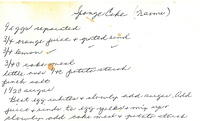 Sponge Cake (Naomi)
9 eggs separated
3/4 orange juice & grated rind
3/4 lemon
3/4 C cake meal
little over 1/4 C potato starch
pinch salt
1 1/2 C sugar
Beat egg whites & slowly add sugar. Add
juice & rind to egg yolks & mix
slowly add cake meal & potato starch